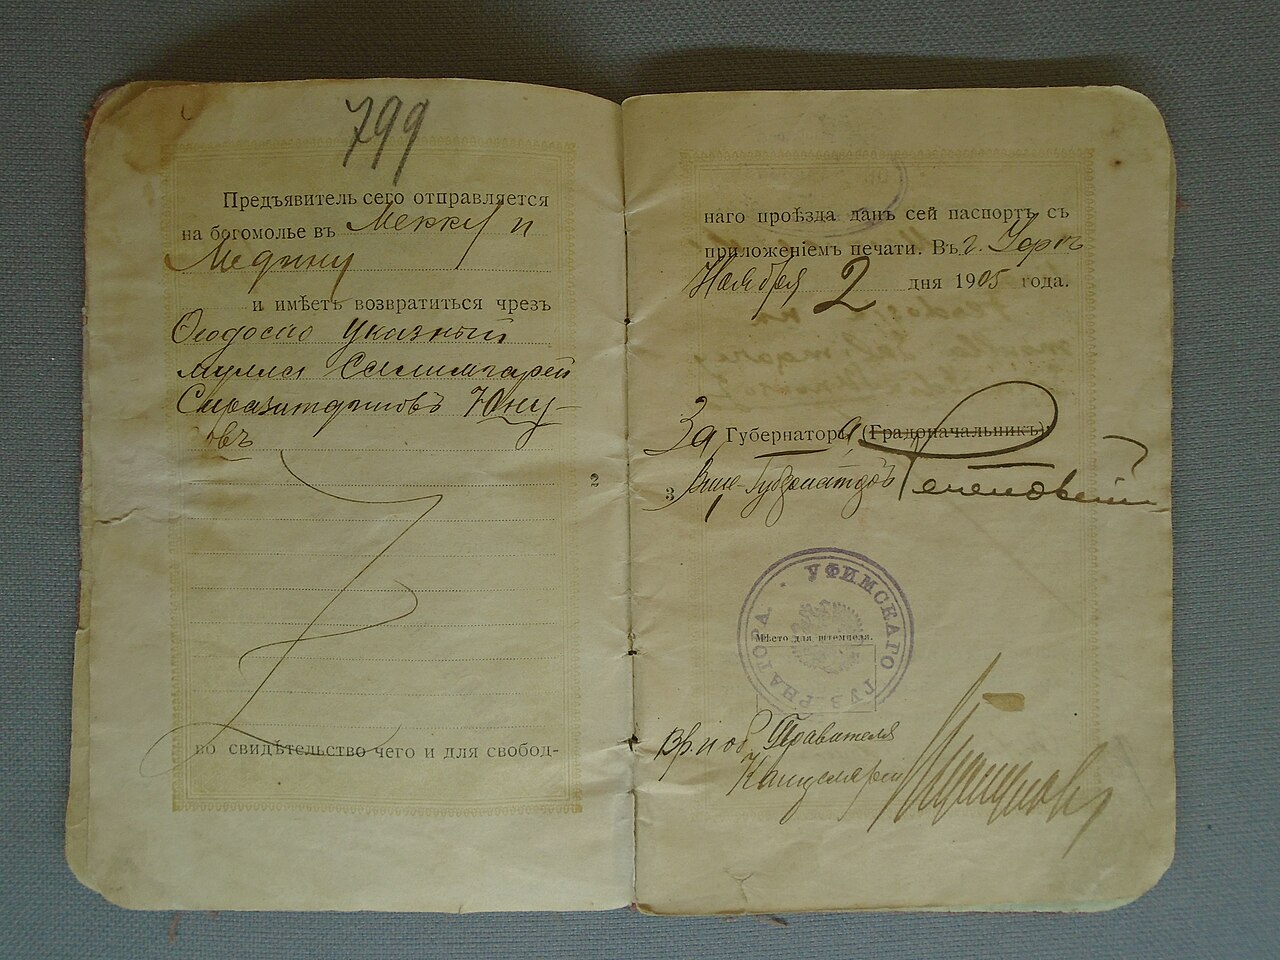 799
Предъявитель сего отправляется
на богомолье въ Мекку и
Медину
и имѣетъ возвратиться чрезъ
Ѳеодосію Указный
мулла Салимгарей
Сиразитдиновъ Юну-
овъ
2
во свидѣтельство чего и для свобод-
наго проѣзда данъ сей паспортъ съ
приложеніемъ печати. Въ г. Уфѣ
Ноября 2 дня 1905 года.
За Губернатора (Градоначальникъ)
3 Вице-Губернаторъ
УФИМСКАГО ГУБЕРНАТОРА
Мѣсто для штемпеля.
Вр и об Правителя
Канцеляріи